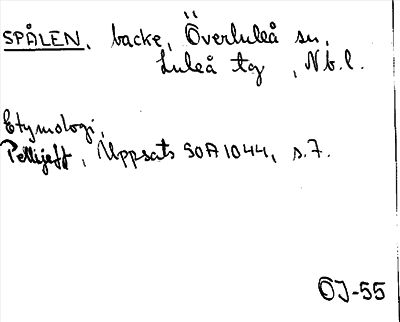 SPÅLEN, backe, Överluleå sn,
Luleå tg, Nb.l.
Etymologi,
Pellijeff, Uppsats SOA 1044, s.7.
OJ-55